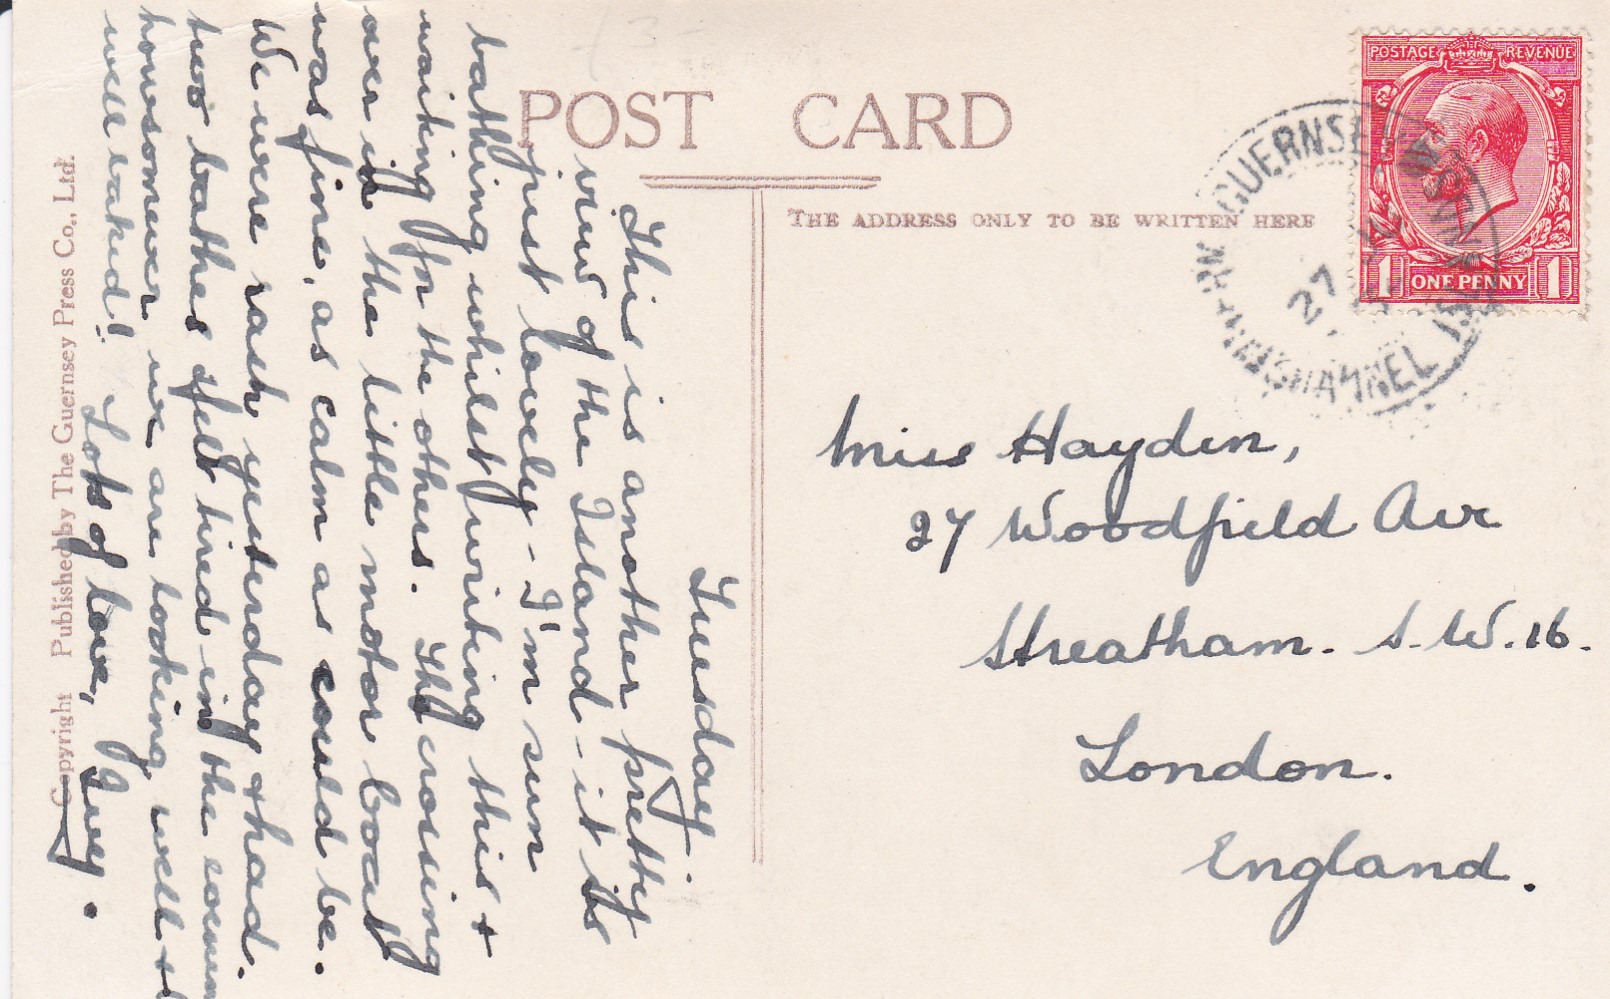 POST CARD
THE ADDRESS ONLY TO BE WRITTEN HERE
POSTAGE REVENUE
1 ONE PENNY 1
GUERNSEY
27
CHANNEL
Tuesday.
This is another pretty
view of the Island - it is
just lovely - I'm sun
bathing whilst writing this +
waiting for the others. The crossing
over in the little motor boat
was fine, as calm as could be.
We were rash yesterday + had
two bathes & felt tired in the
howsomever we are looking well +
well baked! Lots of love,
Miss Hayden,
27 Woodfield Ave
Streatham. S.W.16.
London.
England.
Copyright Published by The Guernsey Press Co., Ltd.